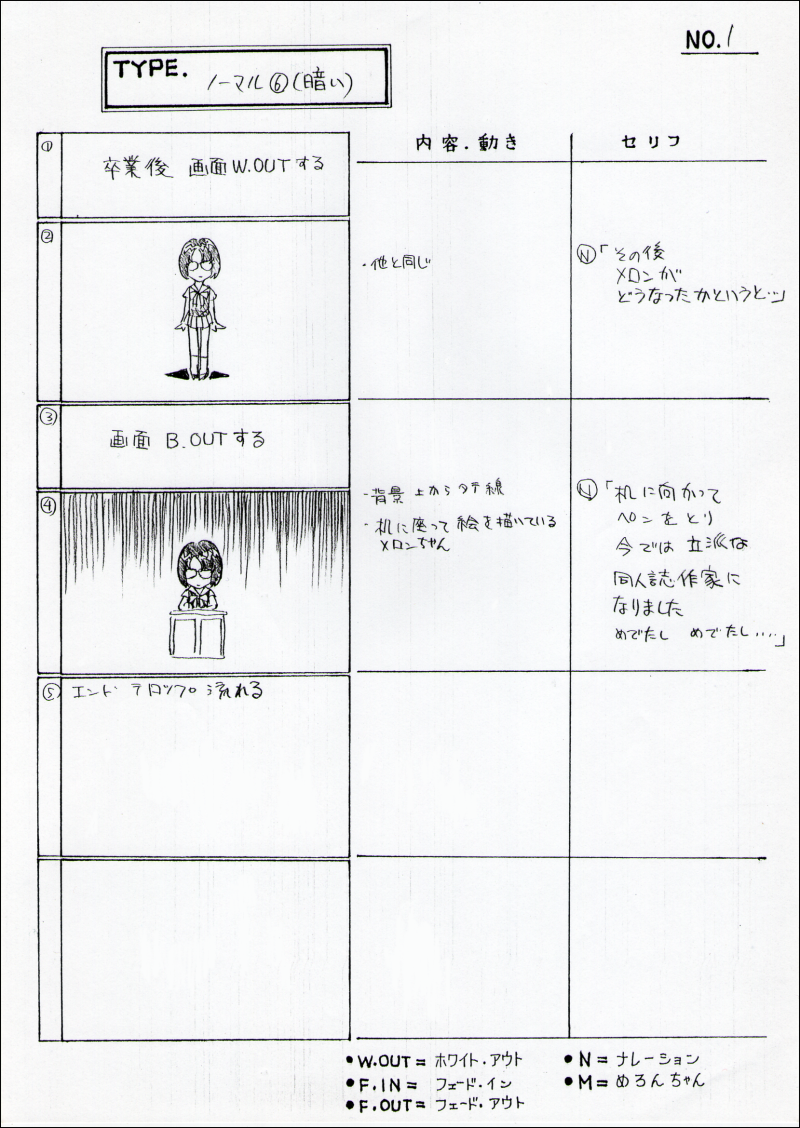 NO.1
TYPE.
ノーマル⑥(暗い)
内容.動き
セリフ
①
卒業後 画面W.OUTする
②
・他と同じ
Ⓝ「その後
メロンが
どうなったかというと…」
③
画面 B.OUTする
④
・背景 上からタテ線
・机に座って絵を描いている
メロンちゃん
Ⓝ「机に向かって
ペンをとり
今では立派な
同人誌作家に
なりました
めでたし めでたし….」
⑤
エンド テロップ 流れる
●W.OUT= ホワイト.アウト
●F.IN= フェード.イン
●F.OUT= フェード.アウト
●N= ナレーション
●M= めろんちゃん